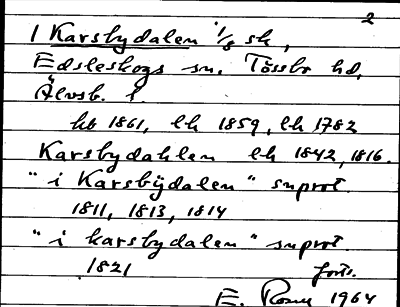 2
1 Karsbydalen 1/8 sk,
Edsleskogs sn, Tössbo hd,
Älvsb. l.
hb 1861, lh 1859, lh 1782
Karsbydahlen lh 1842, 1816.
"i Karsbÿdalen" snprot.
1811, 1813, 1814
"i karsbydalen" snprot.
1821 forts.
E. 1964